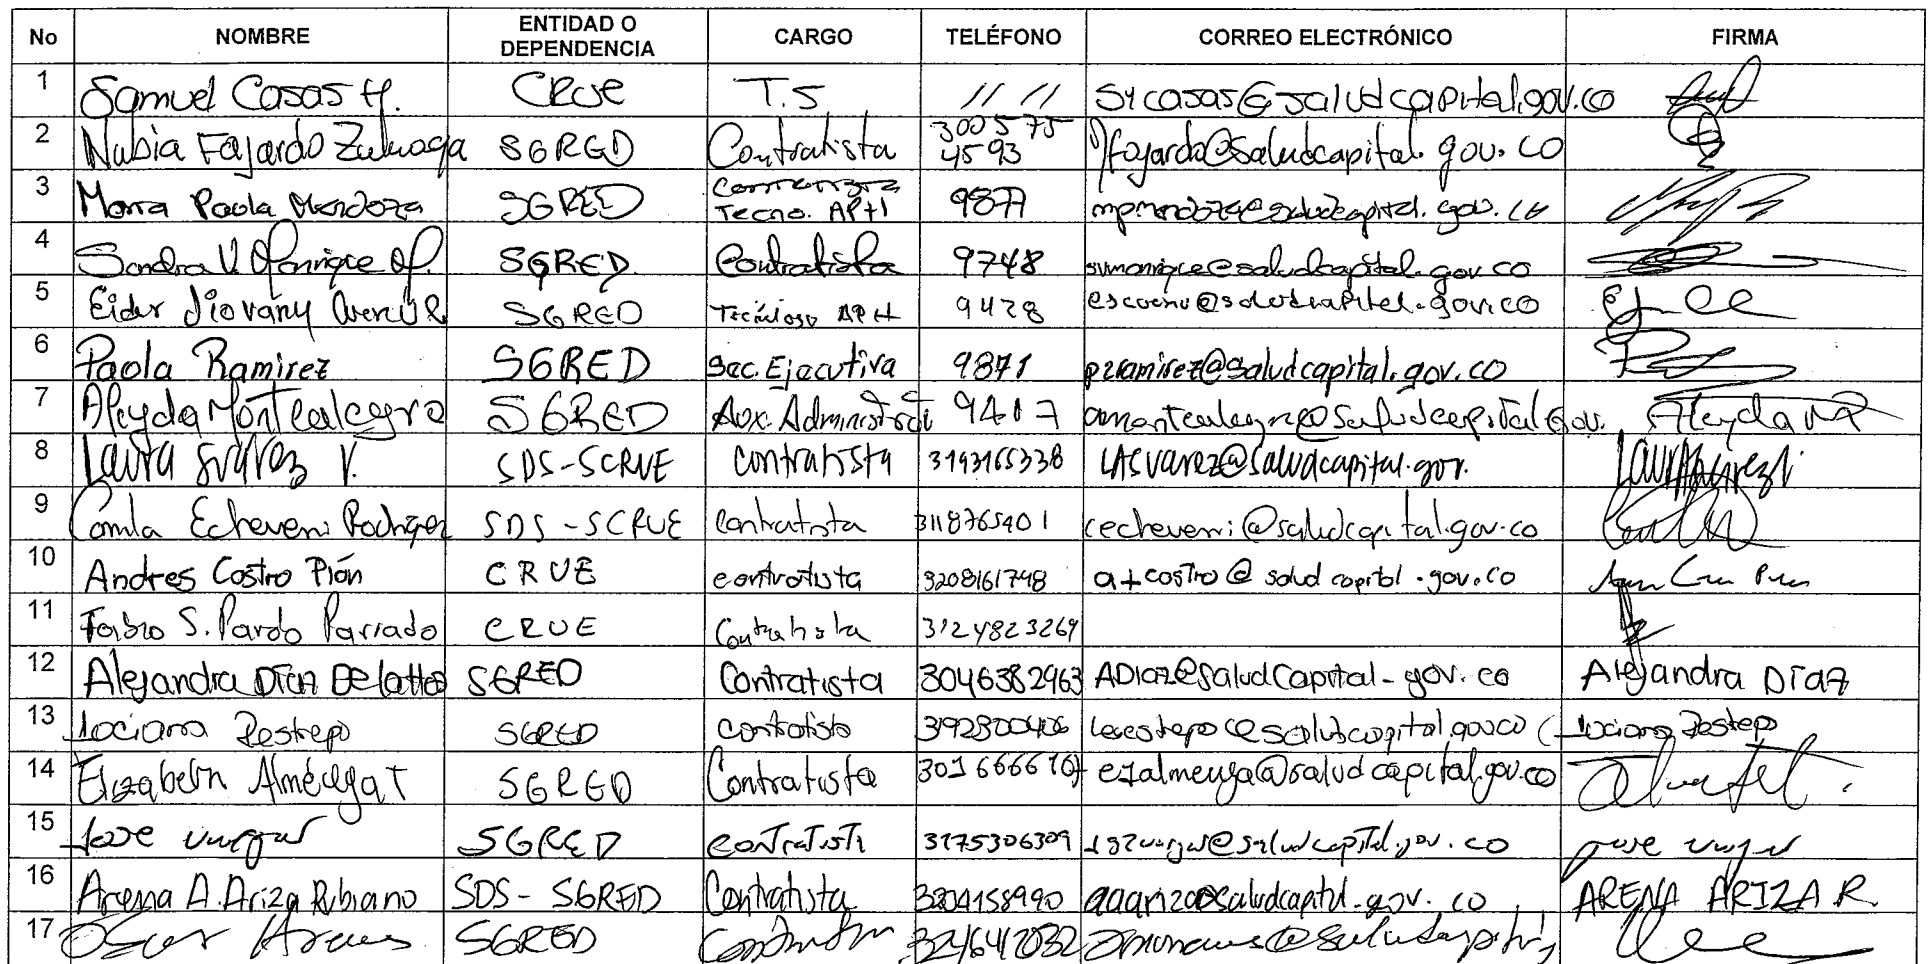 No NOMBRE ENTIDAD O DEPENDENCIA CARGO TELÉFONO CORREO ELECTRÓNICO FIRMA
1 Samuel Casas H. CRUE T.S // // sycasas@saludcapital.gov.co
2 Nubia Fajardo Zuluaga SGRED Contratista 300575 4593 nfajardo@saludcapital.gov.co
3 Maria Paola Mendoza SGRED Contratista Tecno. APH 9877 mpmendoza@saludcapital.gov.co
4 Sandra V. Manrique SGRED Contratista 9748 svmanrique@saludcapital.gov.co
5 Eider Jiovany SGRED Técnico APH 9428 @saludcapital.gov.co
6 Paola Ramirez SGRED Sec. Ejecutiva 9871 pzramirez@saludcapital.gov.co
7 Aleyda Montealegre SGRED Aux. Administrati 9417 amontealegre@saludcapital.gov. Aleyda
8 Laura Suárez V. SDS-SCRUE contratista 3193165338 LASuarez@saludcapital.gov.
9 Camila Echeverri Rodríguez SDS-SCRUE contratista 3118765901 cecheverri@saludcapital.gov.co
10 Andres Castro Pión CRUE contratista 3208161748 a+castro@saludcapital.gov.co
11 Fabio S. Pardo Parrado CRUE Contratista 3124823269
12 Alejandra Díaz De SGRED Contratista 3046382963 ADiaz@saludCapital-gov.co Alejandra Díaz
13 Luciana Restrepo SGRED contratista @saludcapital.gov.co Luciana Restrepo
14 Elizabeth Alméciga T SGRED Contratista @saludcapital.gov.co
15 Jose vargas SGRED contratista 3175306309 @saludcapital.gov.co jose vargas
16 Arena A. Ariza Rubiano SDS-SGRED Contratista 3204158990 aaariza@saludcapital.gov.co ARENA ARIZA R.
17 Oscar SGRED 3216412032